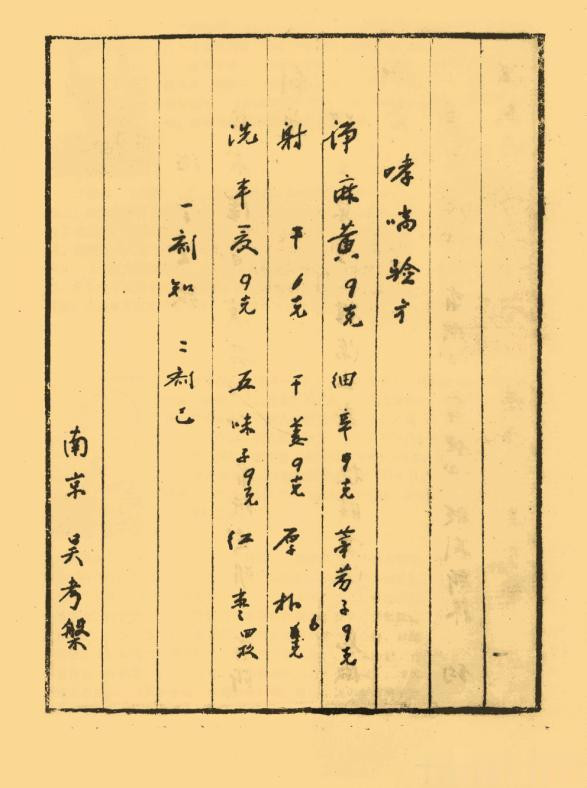 哮喘验方
净麻黄9克 细辛9克 葶苈子9克
射干6克 干姜9克 厚朴6克
洗半夏9克 五味子9克 红枣四枚
一剂知 二剂已
南京 吴考槃